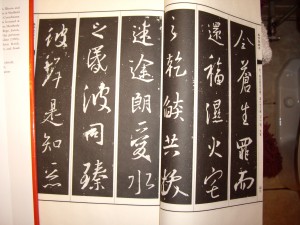 令蒼生罪而
還福濕火宅
之乾燄共拔
迷途朗愛水
之昏波同臻
彼岸是知惡